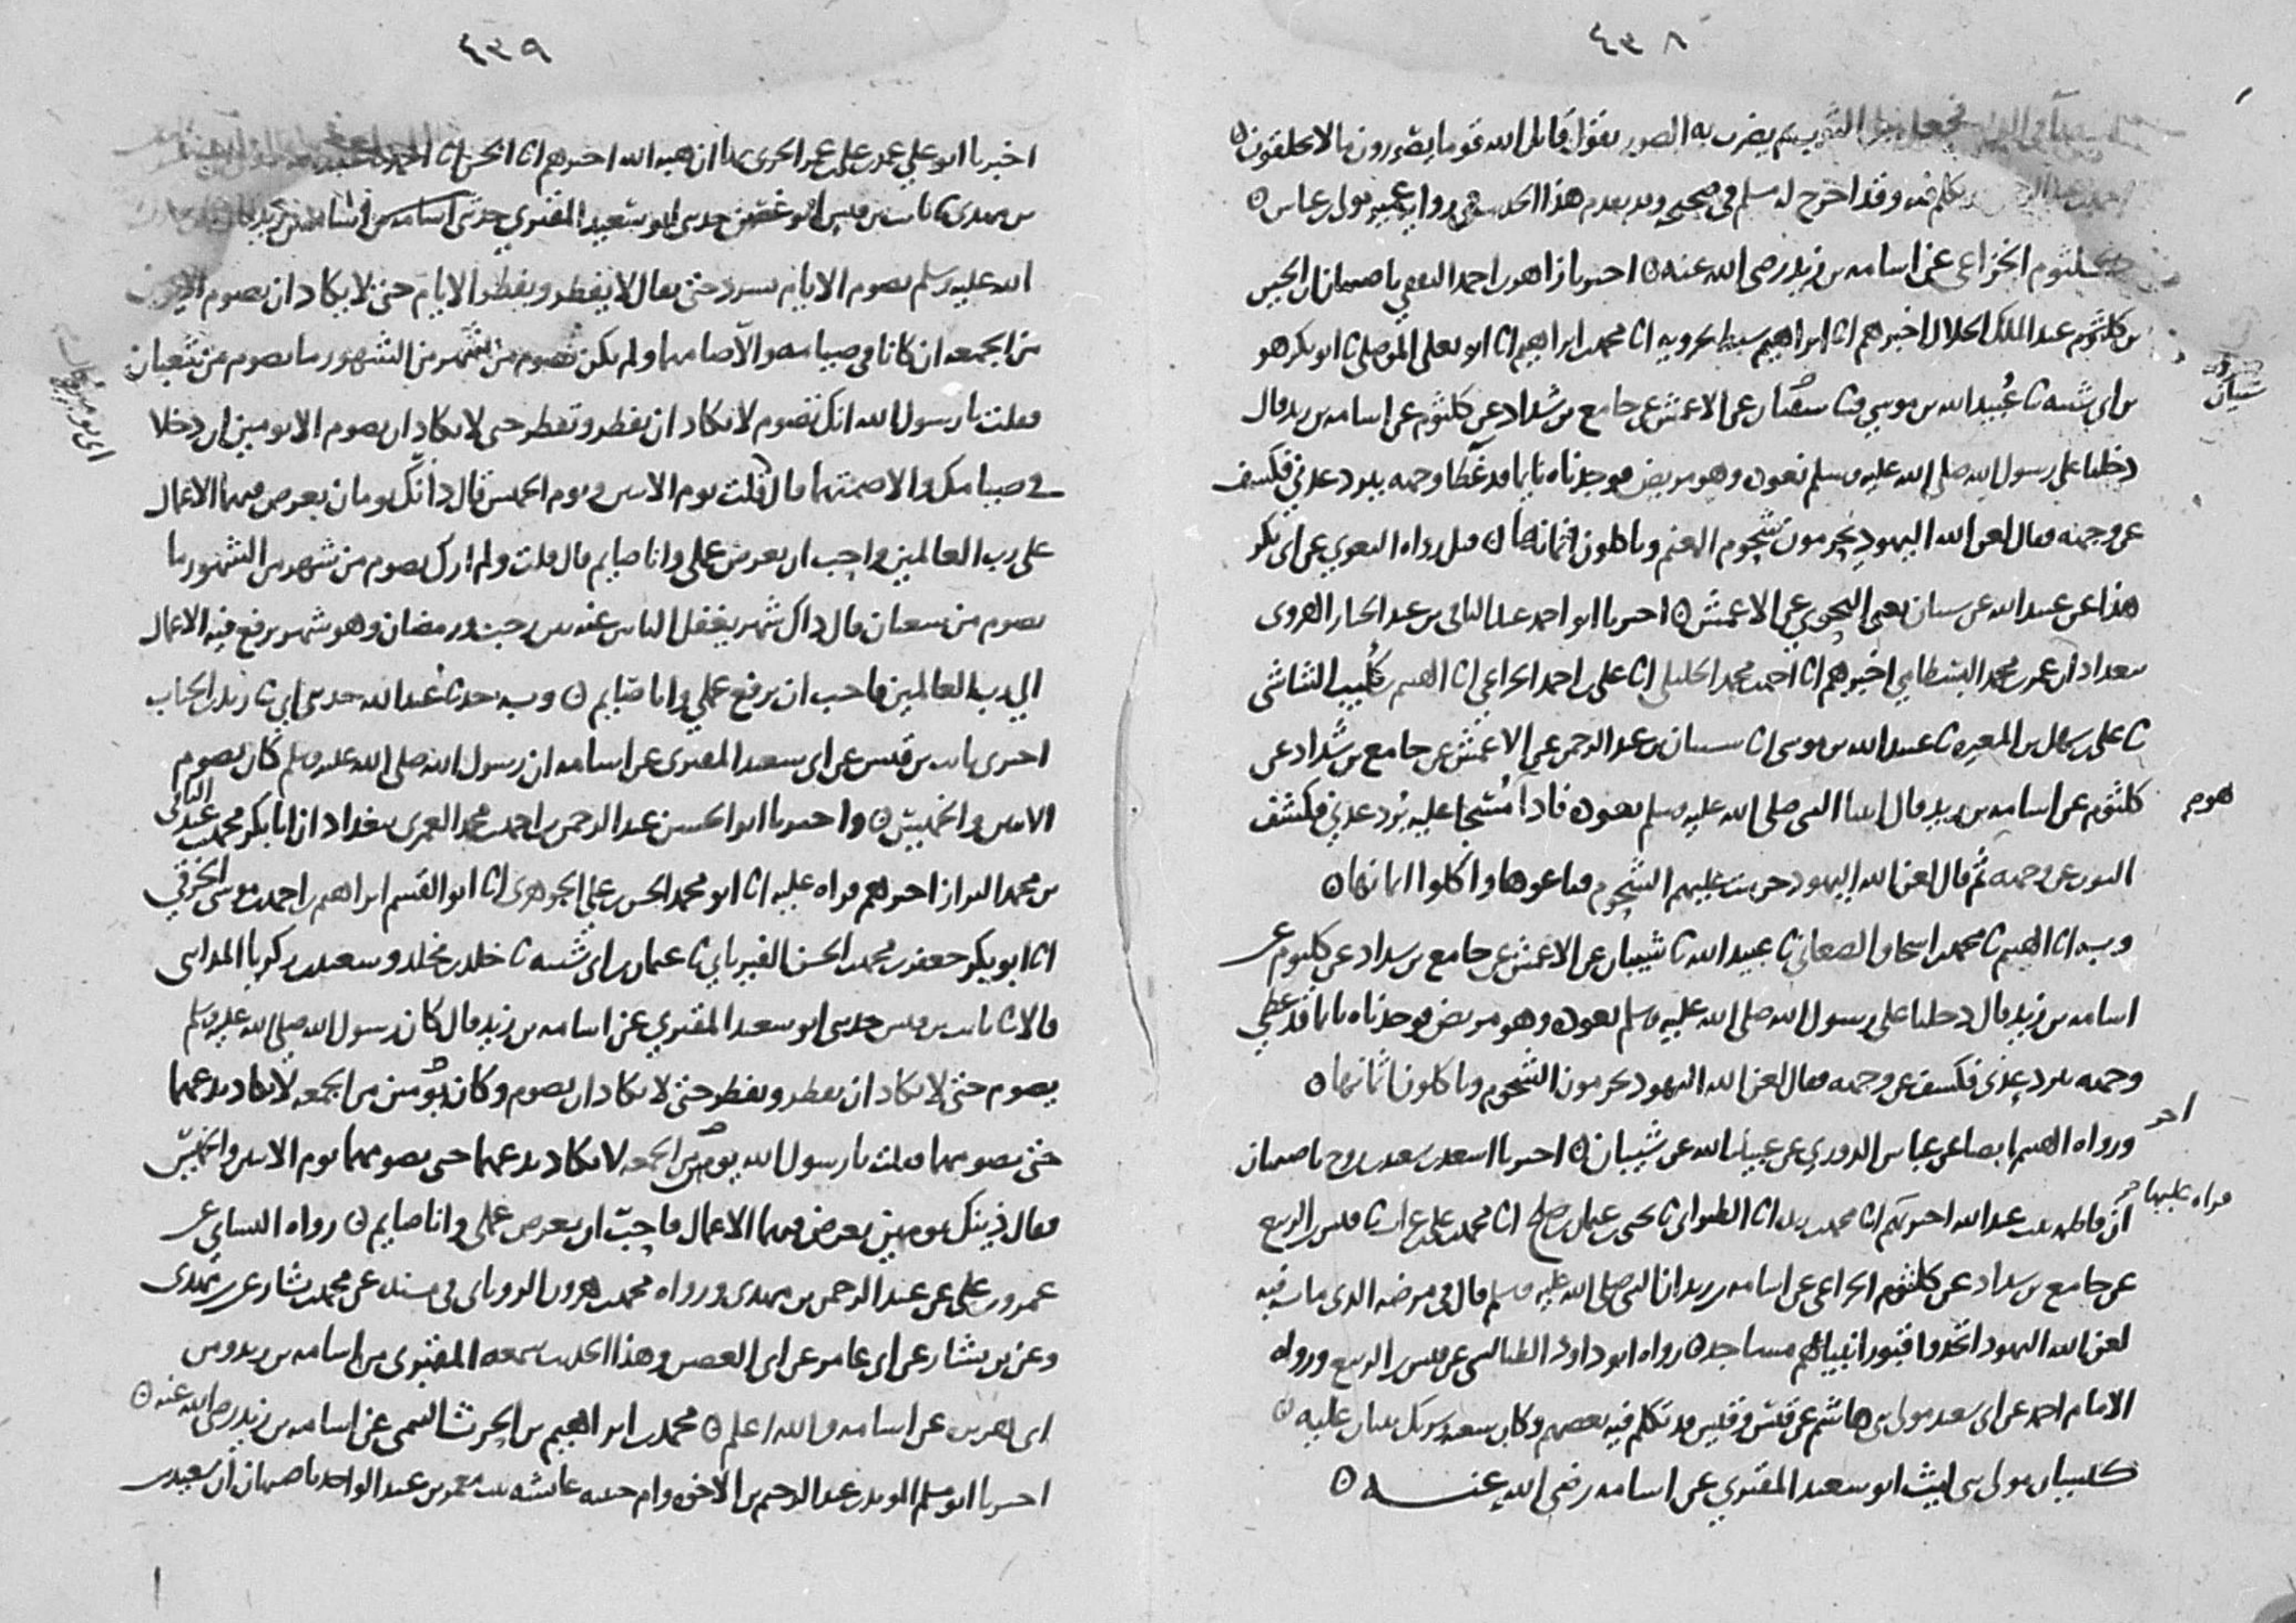 ٤٣٨
الثوب ثم يضرب به الصور يقول قاتل الله قوما يصورون ما لا يخلقون
تكلم فيه وقد اخرج له مسلم في صحيحه وقد تقدم هذا الحديث في رواية عمير مولى ابن عباس
كلثوم الخزاعي عن اسامة بن زيد رضي الله عنه احبرنا زاهر بن احمد الثقفي باصبهان ان الحسين
بن عبد الملك الخلال اخبرهم انا ابراهيم سبط بحرويه انا محمد بن ابراهيم انا ابو يعلى الموصلي ثنا ابو بكر هو
بن ابي شيبة ثنا عبيد الله بن موسى عن الاعمش عن جامع بن شداد عن كلثوم عن اسامة بن زيد قال
دخلنا على رسول الله صلى الله عليه وسلم نعوده وهو مريض فوجدناه نايما قد غطا وجهه ببرد عدني فكشف
عن وجهه فقال لعن الله اليهود يحرمون شحوم الغنم وياكلون اثمانها قيل رواه البغوي عن ابي بكر
هذا عن عبيد الله عن شيبان يعني النحوي عن الاعمش احبرنا ابو احمد عبد الباقي بن عبد الجبار الهروي
ببغداد ان عمر بن محمد البسطامي اخبرهم انا احمد بن محمد الخليلي انا علي بن احمد الخزاعي انا الهيثم بن كليب الشاشي
ثنا علي بن سهل بن المغيرة ثنا عبيد الله بن موسى انا شيبان بن عبد الرحمن عن الاعمش عن جامع بن شداد عن
كلثوم عن اسامة بن زيد قال اتينا النبي صلى الله عليه وسلم نعوده فاذا مسجا عليه برد عدني فكشف
الثوب عن وجهه ثم قال لعن الله اليهود حرمت عليهم الشحوم فباعوها واكلوا اثمانها
وبه انا الهيثم ثنا محمد بن اسحاق الصغاني ثنا عبيد الله ثنا شيبان عن الاعمش عن جامع بن شداد عن كلثوم عن
اسامة بن زيد قال دخلنا على رسول الله صلى الله عليه وسلم نعوده وهو مريض فوجدناه نايما قد غطى
وجهه ببرد عدني فكشف عن وجهه فقال لعن الله اليهود يحرمون الشحوم وياكلون اثمانها
ورواه الهيثم ايضا عن عباس الدوري عن عبيد الله عن شيبان احبرنا اسعد بن سعيد بن روح باصبهان
ان فاطمة بنت عبد الله احبرتهم انا محمد بن انا الطبراني ثنا يحيى بن عثمان بن صالح ثنا قيس بن الربيع
عن جامع بن شداد عن كلثوم الخزاعي عن اسامة بن زيد ان النبي صلى الله عليه وسلم قال في مرضه الذي مات فيه
لعن الله اليهود اتخذوا قبور انبيائهم مساجد رواه ابو داود الطيالسي عن قيس بن الربيع ورواه
الامام احمد عن ابي سعيد مولى بني هاشم عن قيس وقيس قد تكلم فيه بعضهم وكان شعبة يثني عليه
كيسان مولى بني ليث ابو سعيد المقبري عن اسامة رضي الله عنه
شيبان
هو
احر
قراه عليها
٤٣٩
اخبرنا ابو علي عمر بن علي بن عمر الحربي بها ان هبة الله احبرهم انا الحسن انا احمد
بن مهدي ثنا ثابت بن قيس ابو غصن حدثني ابو سعيد المقبري حدثني اسامة بن زيد
الله عليه وسلم يصوم الايام يسرد حتى يقال لا يفطر ويفطر الايام حتى لا يكاد ان يصوم الا يومين
من الجمعة ان كانا في صيامه والا صامهما ولم يكن يصوم من شهر من الشهور ما يصوم من شعبان
فقلت يا رسول الله انك تصوم لا تكاد ان تفطر وتفطر حتى لا تكاد ان تصوم الا يومين ان دخلا
في صيامك والا صمتهما قال قلت يوم الاثنين ويوم الخميس قال ذانك يومان تعرض فيهما الاعمال
على رب العالمين واحب ان يعرض عملي وانا صايم قال قلت ولم ارك تصوم من شهر من الشهور ما
تصوم من شعبان قال ذاك شهر يغفل الناس عنه بين رجب ورمضان وهو شهر يرفع فيه الاعمال
الى رب العالمين فاحب ان يرفع عملي وانا صايم وبه حدثنا عبد الله حدثني ابي ثنا زيد بن الحباب
احبرني ثابت بن قيس عن ابي سعيد المقبري عن اسامة ان رسول الله صلى الله عليه وسلم كان يصوم
الاثنين والخميس واحبرنا ابو الحسن عبد الرحمن بن احمد بن محمد العمري ببغداد ان ابا بكر محمد بن عبد الباقي
بن محمد البزاز احبرهم قراه عليه انا ابو محمد الحسن بن علي الجوهري انا ابو القسم ابراهيم بن احمد بن موسى الخرقي
انا ابو بكر جعفر بن محمد بن الحسن الفريابي ثنا عثمان بن ابي شيبة ثنا خلد بن مخلد وسعيد بن زكريا المدايني
قالا ثنا ثابت بن قيس حدثني ابو سعيد المقبري عن اسامة بن زيد قال كان رسول الله صلى الله عليه وسلم
يصوم حتى لا يكاد ان يفطر ويفطر حتى لا يكاد ان يصوم وكان يومين من الجمعة لا يكاد يدعهما
حتى يصومهما قلت يا رسول الله يومين من الجمعة لا تكاد تدعهما حتى تصومهما يوم الاثنين والخميس
فقال ذينك يومين يعرض فيهما الاعمال فاحب ان يعرض عملي وانا صايم رواه النسائي عن
عمرو بن علي عن عبد الرحمن بن مهدي ورواه محمد بن هرون الروياني في مسنده عن محمد بن بشار عن بن مهدي
وعن بن بشار عن ابي عامر عن ابي الغصن وهذا الحديث سمعه المقبري من اسامة بن زيد ومن
ابي هريرة عن اسامة والله اعلم محمد بن ابراهيم بن الحرث التيمي عن اسامة بن زيد رضي الله عنه
احبرنا ابو مسلم المويد بن عبد الرحيم بن الاخوة وام حبيبة عائشة بنت معمر بن عبد الواحد باصبهان ان سعيد بن